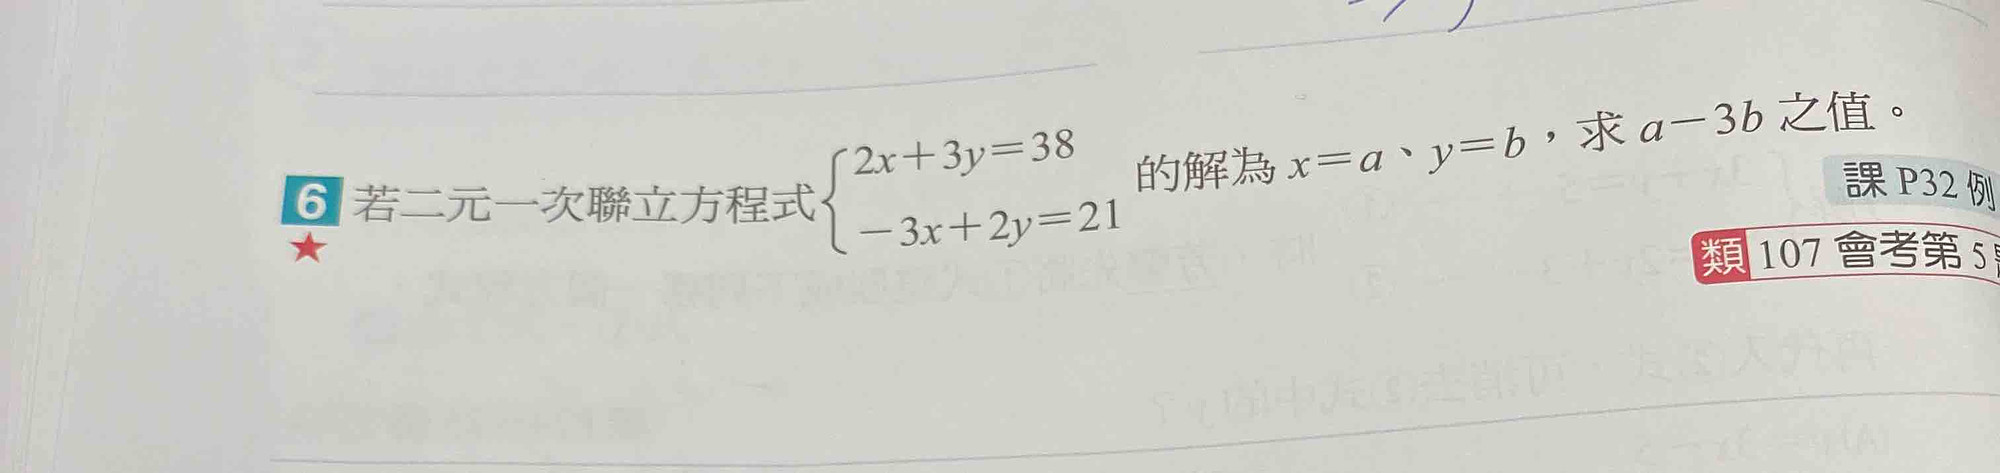 6 若二元一次聯立方程式{2x+3y=38
-3x+2y=21 的解為 x=a、y=b，求 a-3b 之值。
★
課 P32 例
類 107 會考第 5